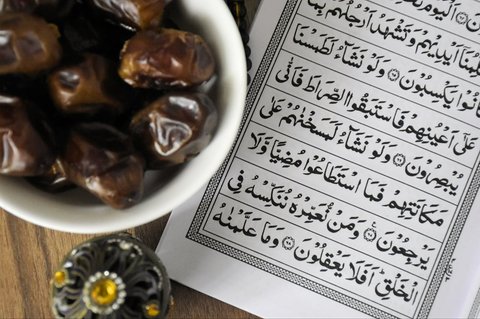 اَلْيَوْمَ
وَتَشْهَدُ اَرْجُلُهُمْ بِمَا اَيْدِيْهِمْ
كَانُوْا يَكْسِبُوْنَ ۝٦٥ وَلَوْ نَشَآءُ لَطَمَسْنَا
عَلٰٓى اَعْيُنِهِمْ فَاسْتَبَقُوا الصِّرَاطَ فَاَنّٰى
يُبْصِرُوْنَ ۝٦٦ وَلَوْ نَشَآءُ لَمَسَخْنٰهُمْ عَلٰى
مَكَانَتِهِمْ فَمَا اسْتَطَاعُوْا مُضِيًّا وَّلَا
يَرْجِعُوْنَ ۝٦٧ وَمَنْ نُّعَمِّرْهُ نُنَكِّسْهُ فِى
الْخَلْقِ ؕ اَفَلَا يَعْقِلُوْنَ ۝٦٨ وَمَا عَلَّمْنٰهُ